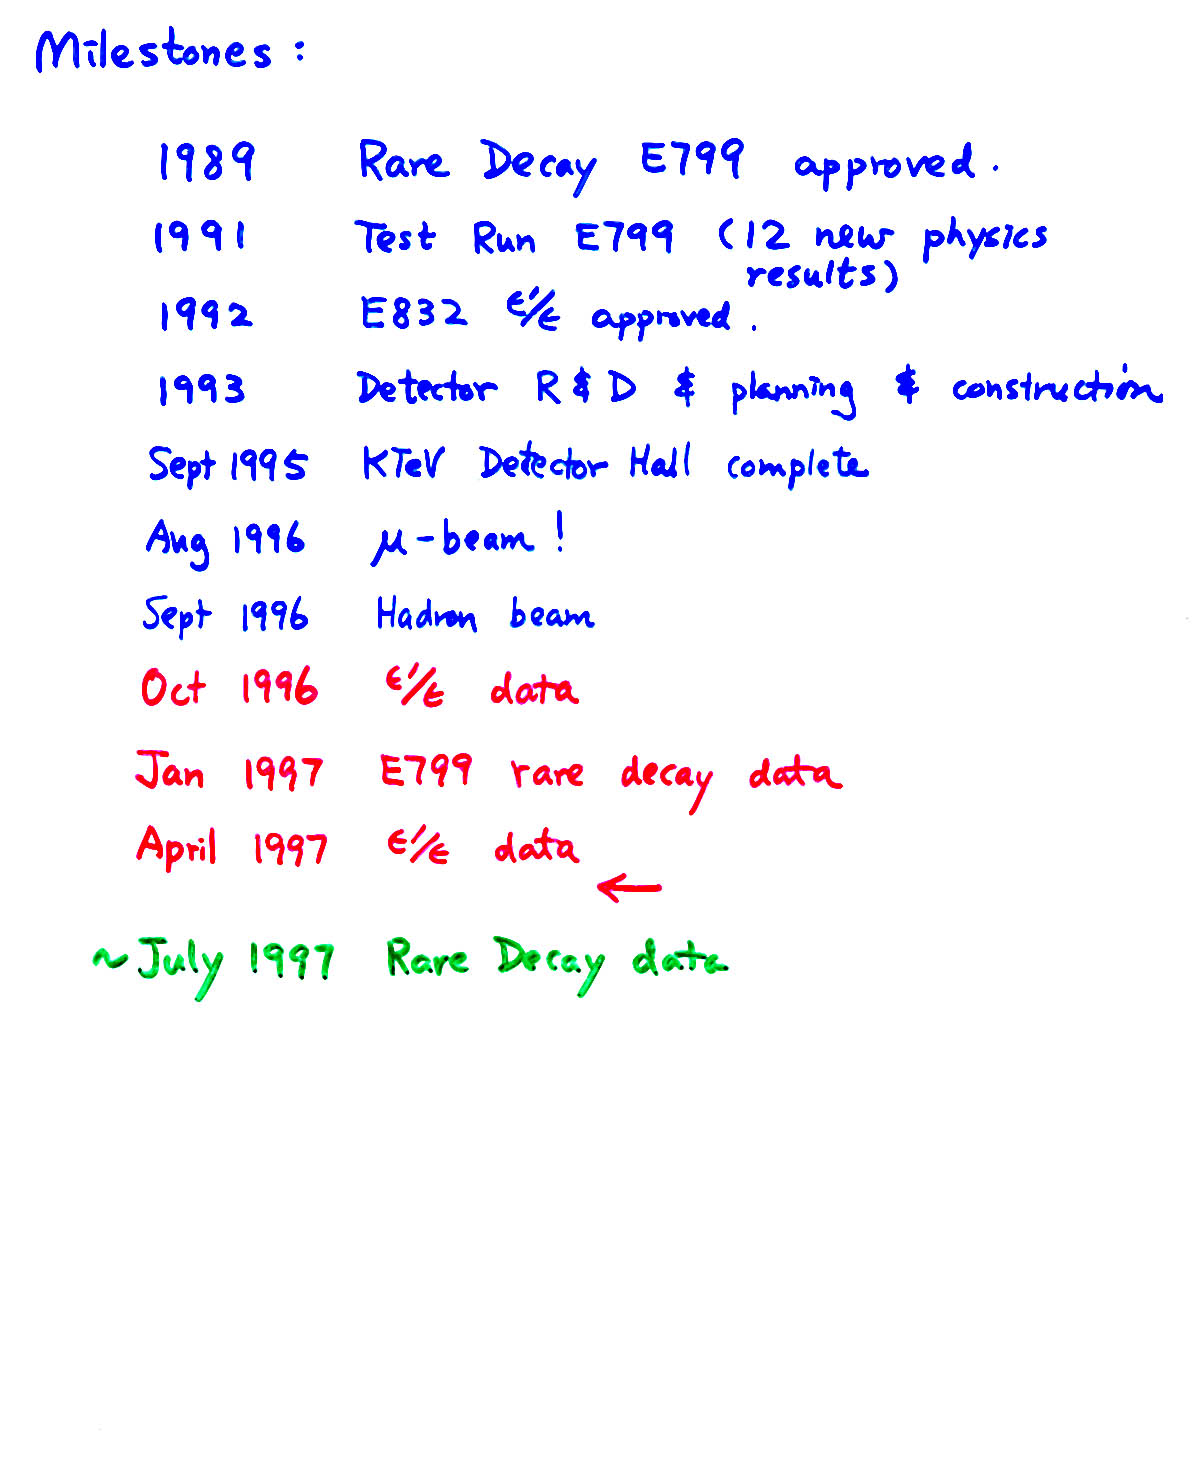 Milestones :
1989 Rare Decay E799 approved.
1991 Test Run E799 (12 new physics
results)
1992 E832 ε'/ε approved.
1993 Detector R & D & planning & construction
Sept 1995 KTeV Detector Hall complete
Aug 1996 μ-beam!
Sept 1996 Hadron beam
Oct 1996 ε'/ε data
Jan 1997 E799 rare decay data
April 1997 ε'/ε data
←
~July 1997 Rare Decay data